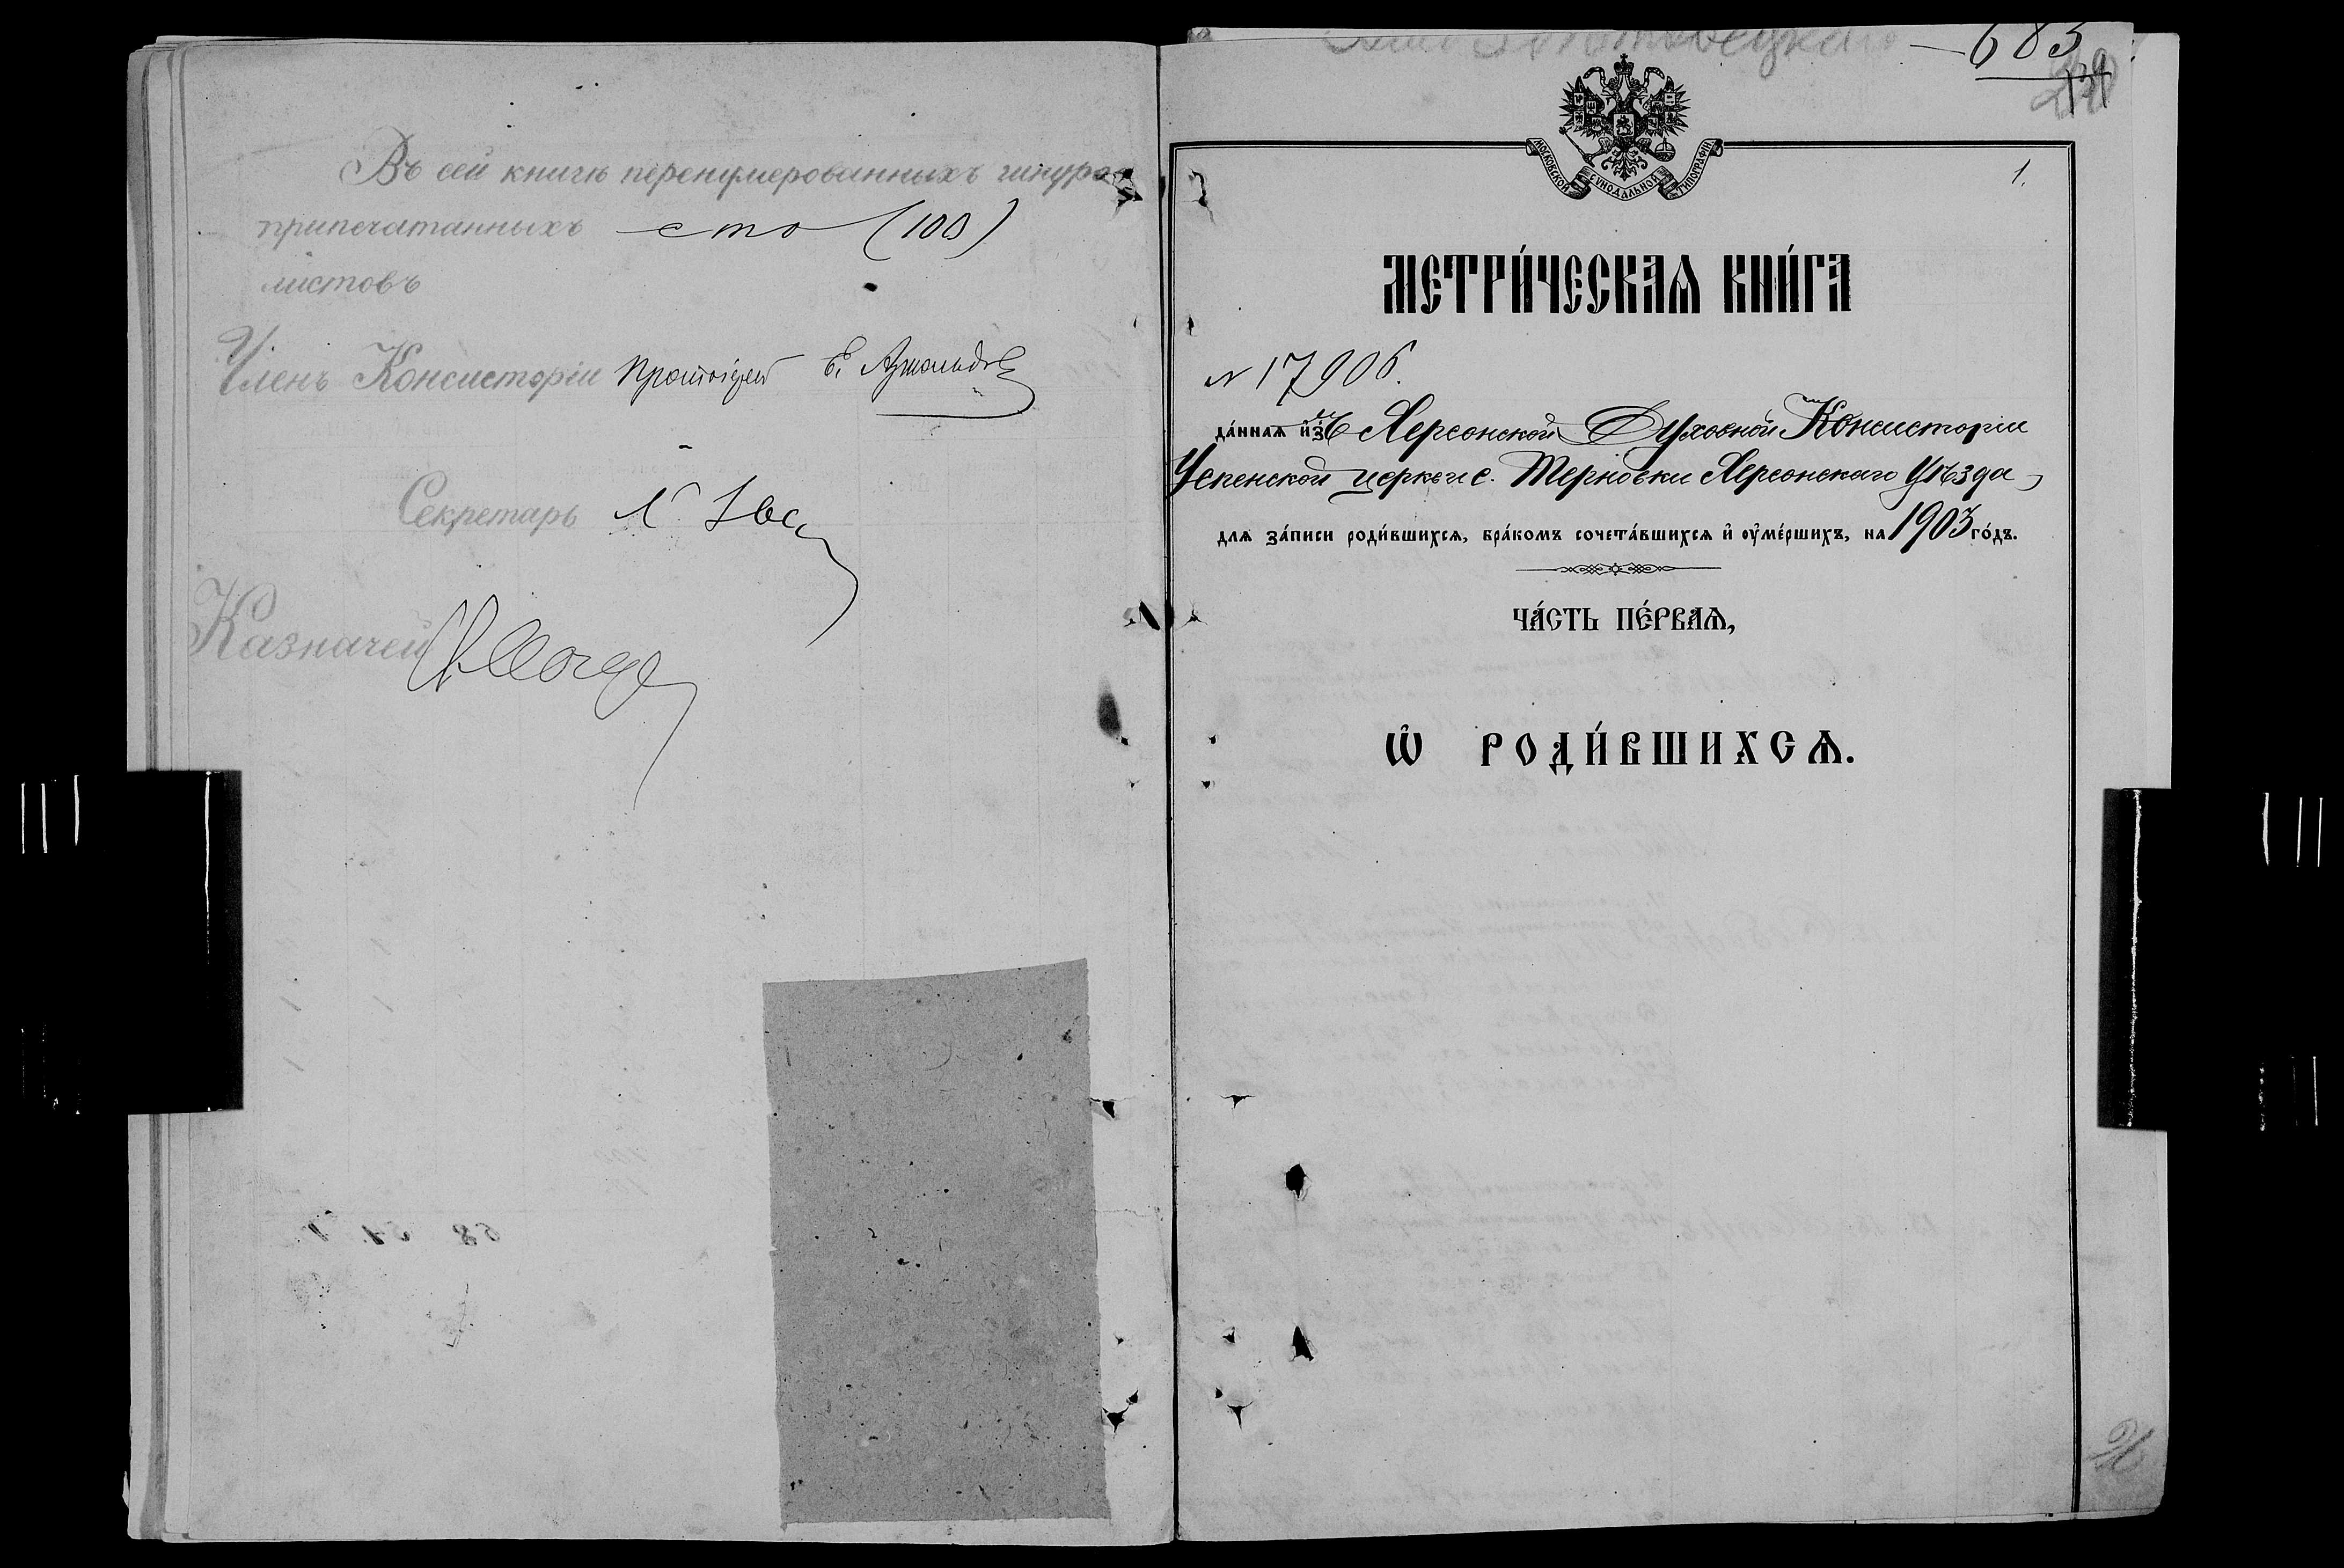 Въ сей книгѣ перенумерованныхъ шнуро
припечатанныхъ сто (100)
листовъ
Членъ Консисторіи Протоіерей
Секретарь
Казначей
683
1.
МОСКОВСКОЙ СѴНОДАЛЬНОЙ ТИПОГРАФІИ
МЕТРИ́ЧЕСКАѦ КНИ́ГА
№ 17906.
да́ннаѧ и҆зъ Херсонской Духовной Консисторіи
Успенской церкви с. Терновки Херсонскаго Уѣзда,
длѧ за́писи роди́вшихсѧ, бра́комъ сочета́вшихсѧ и҆ ᲂу҆ме́ршихъ, на 1903 го́дъ.
ЧА́СТЬ ПЕ́РВАѦ,
Ѡ҆ РОДИ́ВШИХСѦ.